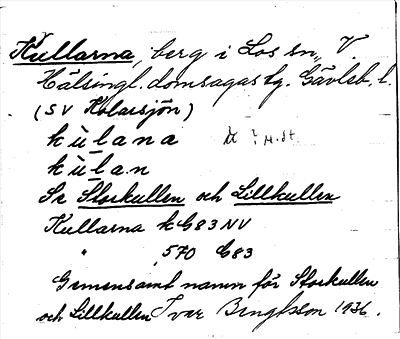 Kullarna, berg i Los sn, V.
Hälsingl. domsagas tg. Gävleb. l.
(SV Kolarsjön)
kùlana ? M.st.
kùlan
Se Storkullen och Lillkullen
Kullarna kG83NV
" 570 G83
Gemensamt namn för Storkullen
och Lillkullen Ivar Bengtsson 1936.